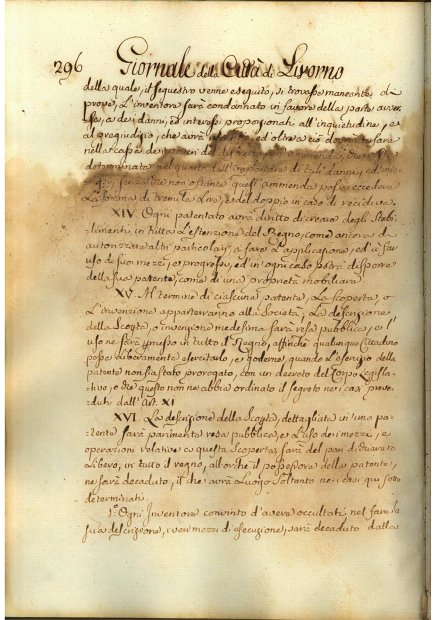 296 Giornale della Città di Livorno
della quale, il sequestro venne eseguito, si trovasse mancante di
prove, L'inventore sarà condannato in favore della parte avver-
sa, a dei danni, ed interessi proporzionati all'inquietudine, e
al pregiudizio, che avrà ed oltre ciò
nella Cassa dei
determinata nel quarto dall'importare di tali danni, ed inte-
senza che non ostante quest'ammenda possa eccedere
La somma di tremila Lire, e del doppio in caso di recidiva.
XIV. Ogni patentato avrà diritto di creare degli Stabi-
limenti in tutta L'estensione del Regno, come ancora di
autorizzare altri particolari a fare L'applicazione, ed a far
uso de' suoi mezzi, e progressi, ed in ogni caso potrà disporre
della sua patente, come di una proprietà mobiliare.
XV. Al termine di ciascuna patente, La scoperta, o
L'invenzione apparterranno alla Società; La descrizione
della Scoperta, o invenzione medesima sarà resa pubblica, e l'
uso ne sarà permesso in tutto il Regno, affinchè qualunque Cittadino
possa liberamente esercitarlo, e goderne, quando l'esercizio della
patente non sia stato prorogato, con un decreto del Corpo Legisla-
tivo, o che questo non ne abbia ordinato il segreto nei casi preve-
duti dall'Art. XI
XVI. La descrizione della Scoperta, dettagliata in una pa-
tente sarà parimente resa pubblica, e L'uso dei mezzi, e
operazioni relative a questa Scoperta, sarà del pari dichiarato
Libero, in tutto il regno, allorchè il possessore della patente,
ne sarà decaduto, il che avrà Luogo soltanto nei casi qui sotto
determinati.
1.° Ogni Inventore convinto d'avere occultati nel fare la
sua descrizione, i veri mezzi di esecuzione, sarà decaduto dalla